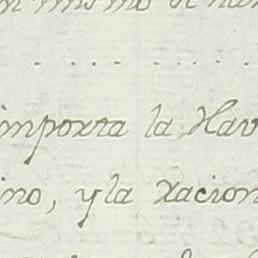 mismo
. . . . . . . . .
importa la Hav
ino, y la racion